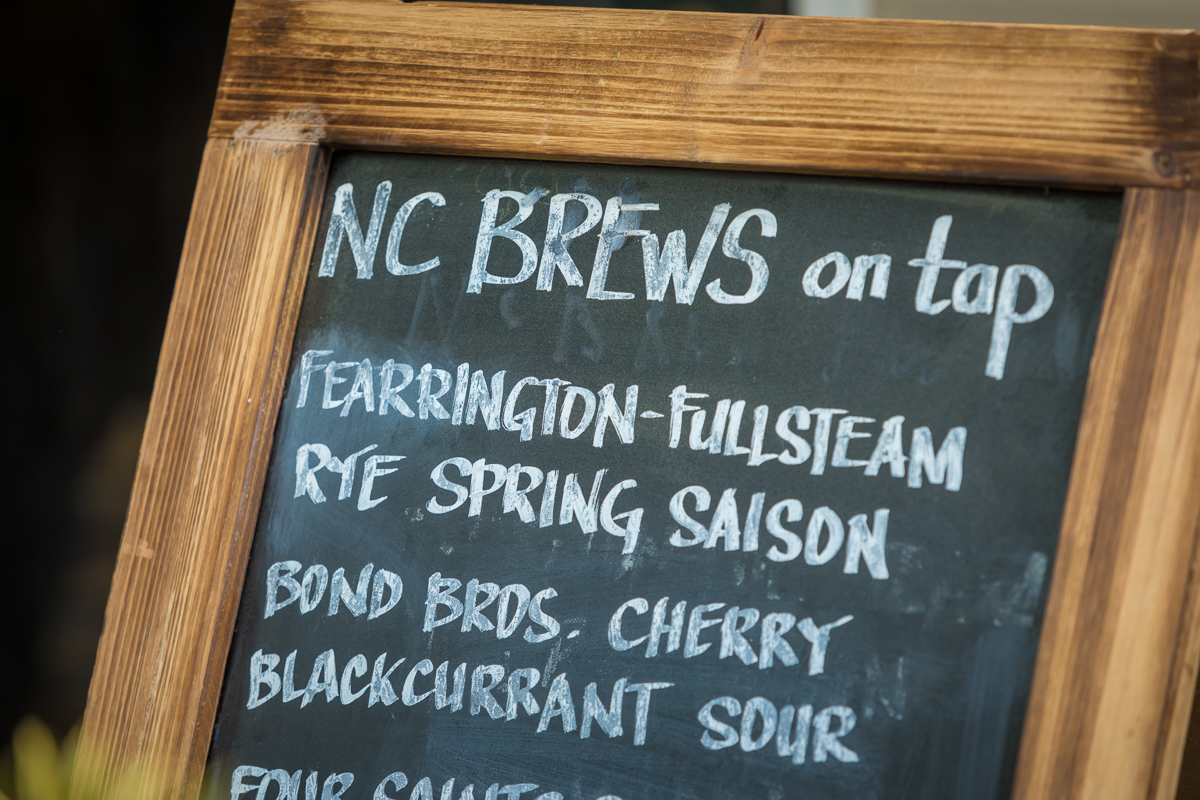 NC BREWS on tap
FEARRINGTON-FULLSTEAM
RYE SPRING SAISON
BOND BROS. CHERRY
BLACKCURRANT SOUR
FOUR SAINTS